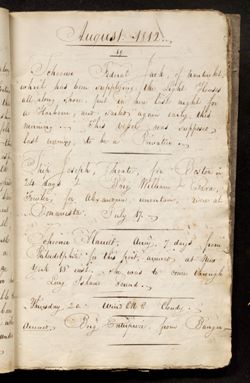 August 1812.
Schooner Federal Jack, of Nantucket,
which has been supplying the Light Houses
all along shore, put in here last night for
a Harbour, and sailed again early this
morning. This vessel was supposed
last evening, to be a Privateer.
Ship Joseph, for Boston in
24 days. Brig William &
for Alexandria, were at
Bonavista. July 17.
Schooner 7 days from
Philadelphia for this port, arrived at New
York 15 inst. She was to come through
Long Island Sound.
Thursday 20. Wind Cloudy.
Arrived, Brig Enterprize, from Bangor